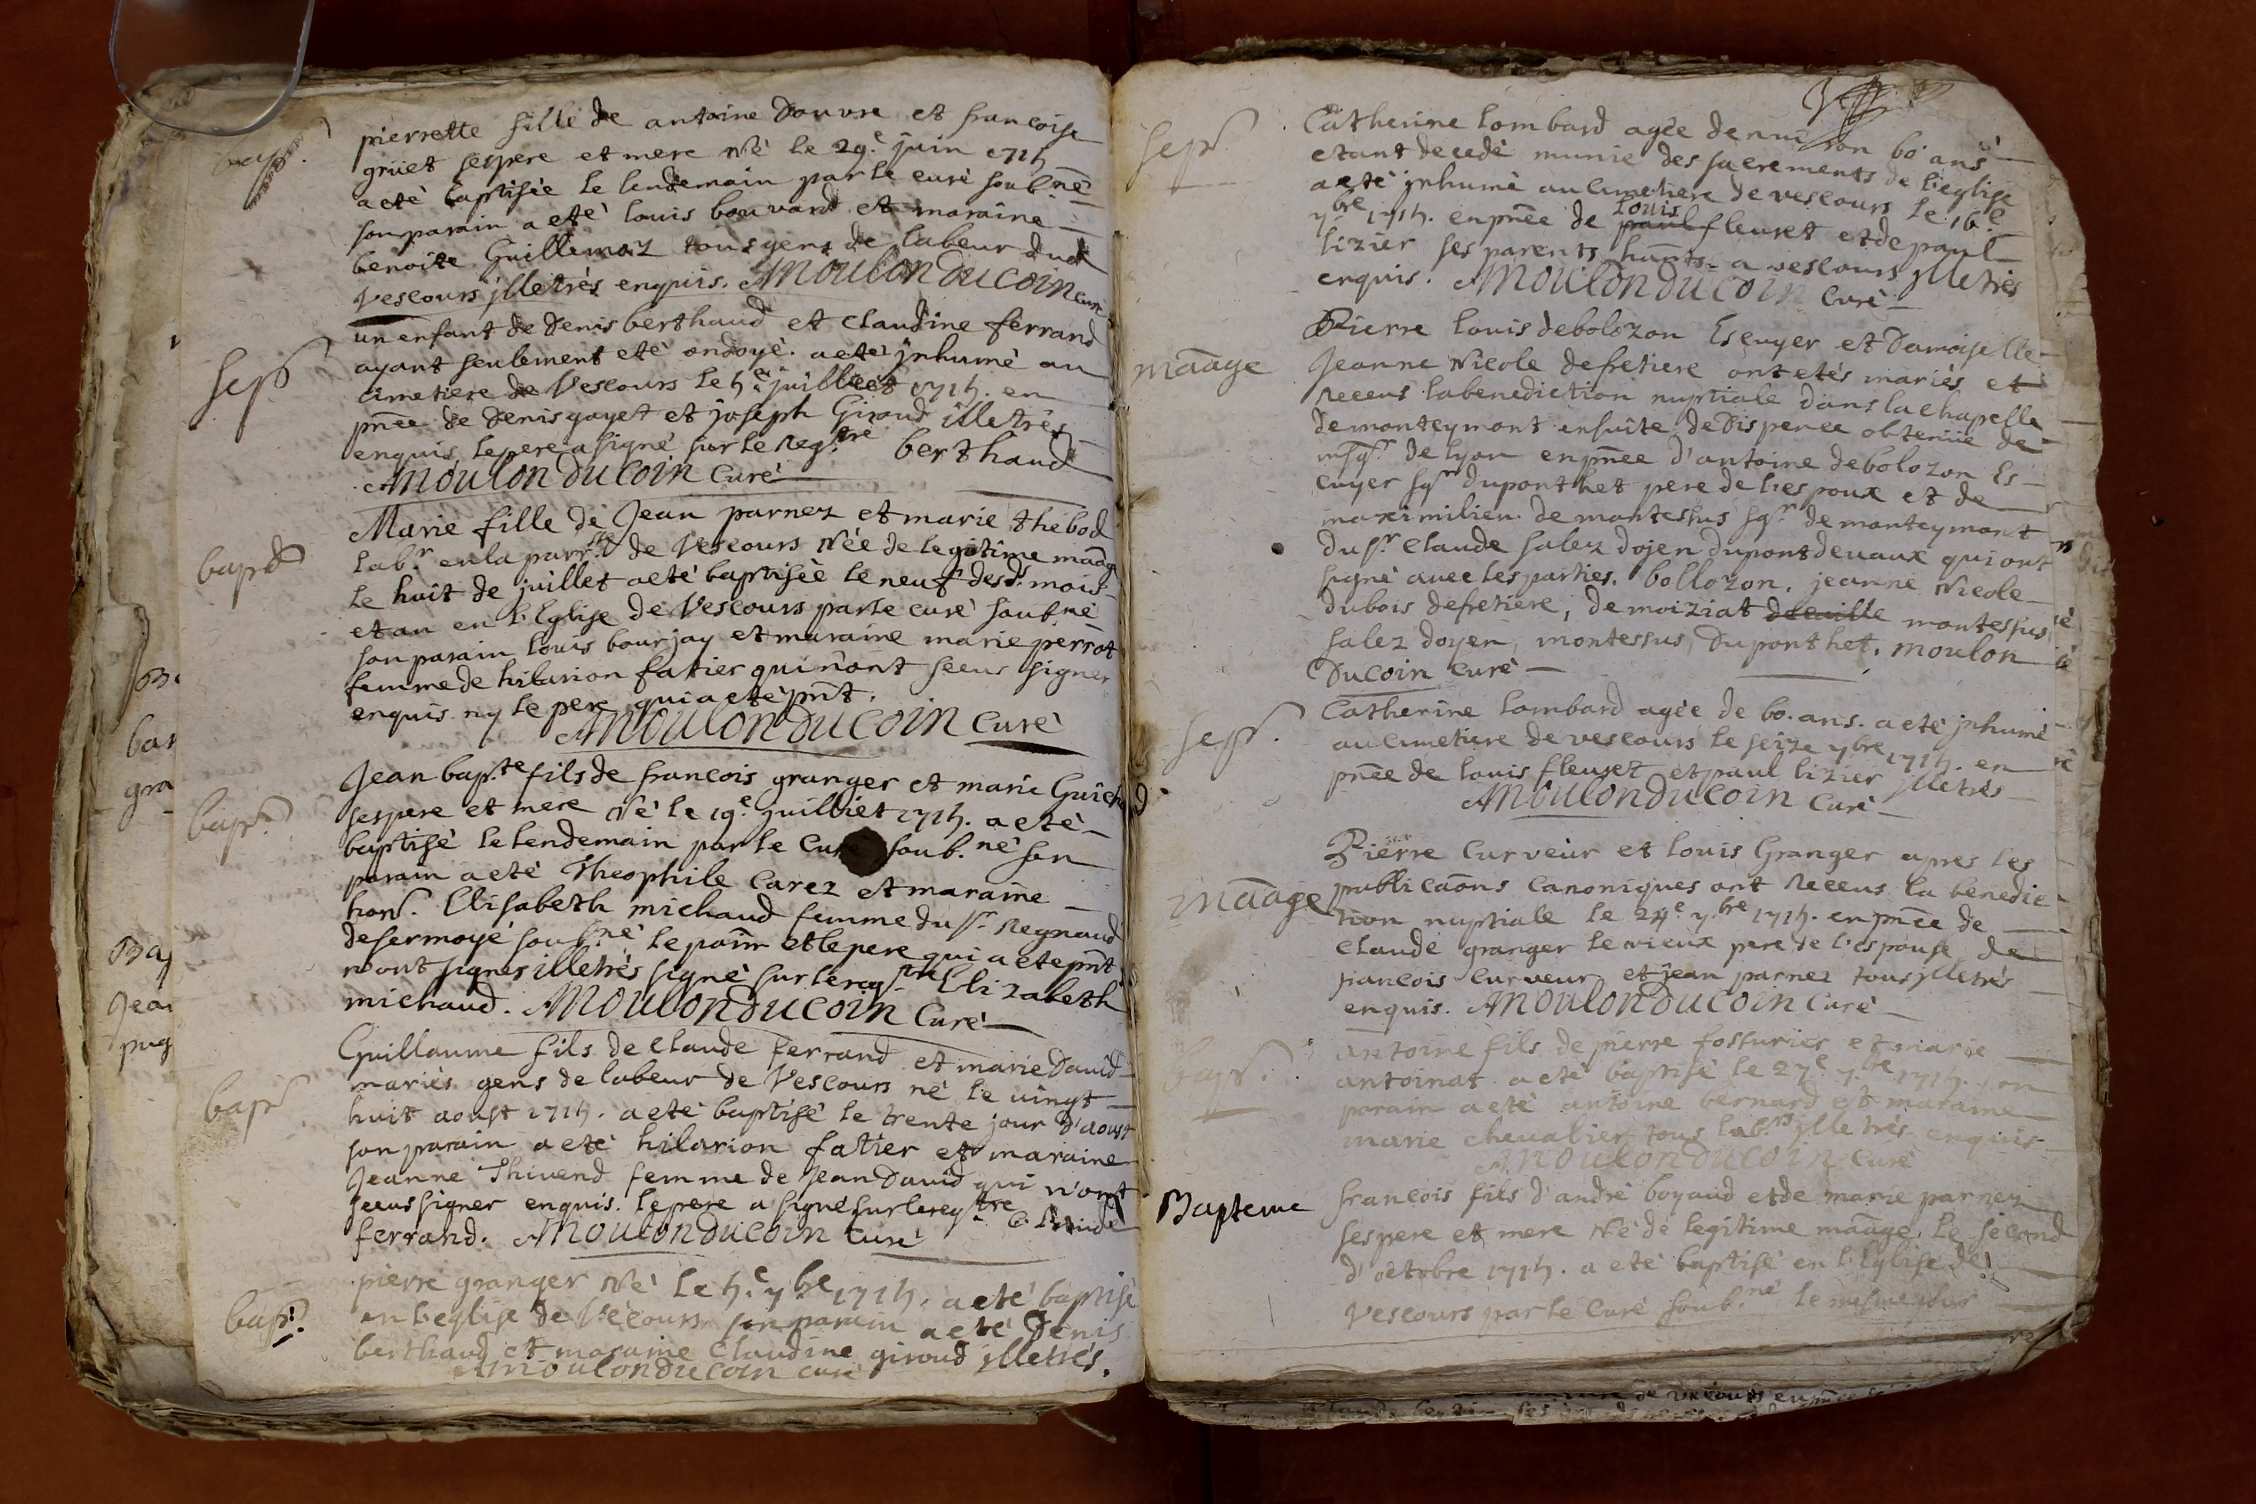 bapt.
pierrette fille de antoine Douvre et francoise
grüet ses pere et mere Né le 29.e juin 1715
a eté baptisée le lendemain par le curé soub.né
son parain a eté louis bouvard et maraine
benoite Guillemaz tous gens de labeur dud
Vescours jlletrés enquis. A Moulon Ducoin Curé
sep
un enfant de Denis berthaud et Claudine ferrand
ayant seulement eté ondoyé. a eté jnhumé au
cimetiere de Vescours le 5.e juilliet 1715. en
pñce de Denis gayet et joseph Giroud illetrés
enquis le pere a signé sur le reg.tre berthaud
A Moulon Ducoin Curé
bapt
Marie fille de Jean parnez et marie thébod
lab.r en la parr.sse de Vescours Née de legitime maäg
le huit de juillet a eté baptisée le neuf desd. mois
et an en l'Eglise de Vescours par le curé soubné
son parain louis bourjay et maraine marie perrot
femme de hilarion fatier qui n'ont sceus signer
enquis ny le pere qui a eté pñt.
A Moulon Ducoin Curé
bapt.
Jean bap.te fils de francois granger et marie Guichard
ses pere et mere Né le 19.e juilliet 1715. a eté
baptisé le lendemain par le Curé soub.né son
parain a eté Theophile Carez et maraine
hon. Elisabeth michaud femme du sr. Regnaud
desermoyé soub.né le parin et le pere qui a eté pñt
n'ont signés illetrés signé sur le reg.tre Elizabeth
michaud. A Moulon Ducoin Curé
bapt
Guillaume fils de Claude ferrand et marie David
mariés gens de labeur de Vescours né le vingt
huit aoust 1715. a eté baptisé le trente jour d'aoust
son parain a eté hilarion fatier et maraine
Jeanne Thivend femme de Jean David qui n'ont
sceus signer enquis. le pere a signé sur le reg.tre
ferrand. A Moulon Ducoin Curé
bapt.
pierre granger Né le 5.e 7.bre 1715. a eté baptisé
en l'eglise de Vécours son parain a eté Denis
berthaud et maraine Claudine giroud jlletrés.
A Moulon Ducoin curé
sep.
Catherine lombard agée de 60 ans
etant decedé munie des sacrements de l'eglise
a eté jnhumé au cimetiere de vescours le 16.e
7bre 1715. en pñce de louis fleuret et de paul
lizier ses parents hañts a vescours jlletrés
enquis. A Moulon Ducoin Curé
maäage
Pierre louis debolozon Escuyer et Damoiselle
Jeanne Nicole defretiere ont etés mariés et
Receus la benediction nuptiale dans la chapelle
de monteymont ensuite de Dispence obtenüe de
msg.r de lyon en pñce d'antoine debolozon Es-
cuyer sg.r du ponthet pere de l'espoux et de
maximilien de montessus sg.r de monteymont
du sr. Claude salez dojen du pontdevaux qui ont
signé avec les parties. bollozon, jeanne Nicole
dubois defretiere, demoiziat montessus
salez doyen, montessus, Duponthet. moulon
Ducoin Curé
sep.
Catherine lombard agée de 60. ans. a eté jnhumé
au cimetiere de vescours le seize 7bre 1715. en
pñce de louis fleuret et paul lizier jlletrés
A Moulon Ducoin Curé
maäage
Pierre Curveur et louis Granger apres les
publicaõns Canoniques ont Receus la benedic
tion nuptiale le 24.e 7.bre 1715. en pñce de
Claude granger le vieux pere de l'espouse de
francois Curveur et jean parnez tous jlletrés
enquis. A Moulon Ducoin Curé
bapt.
antoine fils de pierre fosturier et marie
antoinat a eté baptisé le 27.e 7.bre 1715. son
parain a eté antoine bernard et maraine
marie chevalier tous lab.rs jlletrés enquis
A Moulon Ducoin Curé
Bapteme
francois fils d'andré boyaud et de marie parney
ses pere et mere Né de legitime maäge. le second
d'octobre 1715. a eté baptisé en l'Eglise de
Vescours par le Curé soub.né le mesme jour